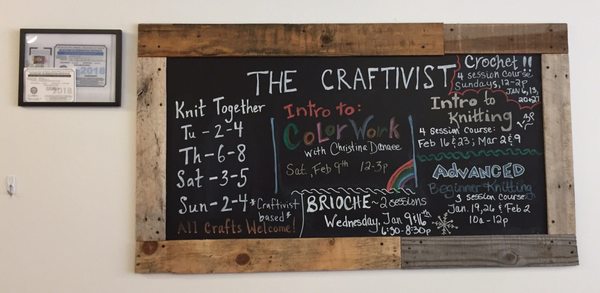 THE CRAFTIVIST
Knit Together
Tu - 2-4
Th - 6-8
Sat - 3-5
Sun - 2-4 *Craftivist
based*
All Crafts Welcome!
Intro to:
Color Work
with Christina Danaee
Sat., Feb 9th 12-3p
BRIOCHE ~ 2 sessions
Wednesday, Jan 9 & 16th
6:30-8:30p
Crochet!!
4 session course
Sundays, 12-2p
Jan 6, 13,
20 & 27
Intro to
Knitting
4 session course:
Feb 16 & 23; Mar 2 & 9
ADVANCED
Beginner Knitting
3 session course
Jan. 19, 26 & Feb 2
10a - 12p
2018